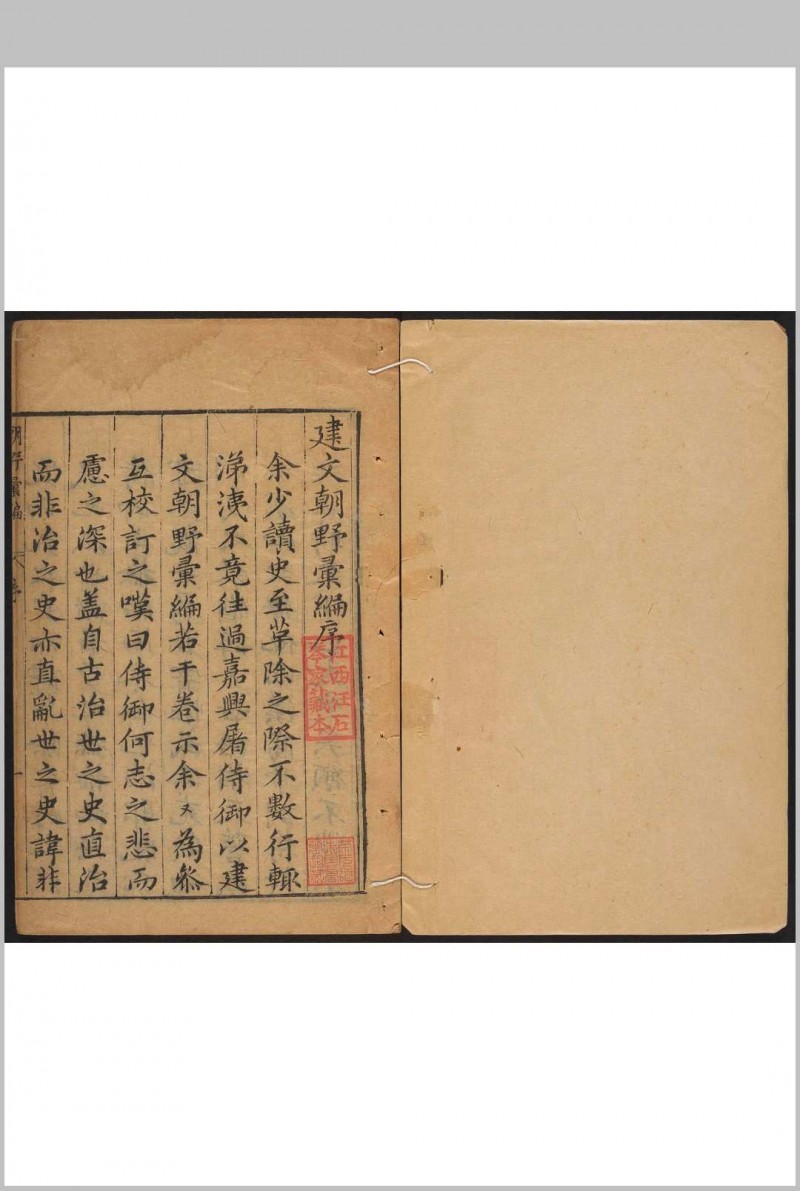 建文朝野彙編序
余少讀史至革除之際不數行輒
涕洟不竟往過嘉興屠侍御以建
文朝野彙編若干卷示余又為叅
互校訂之嘆曰侍御何志之悲而
慮之深也盖自古治世之史直治
而非治之史亦直亂世之史諱非
朝野彙編 序 一
江西汪石
琴家藏本